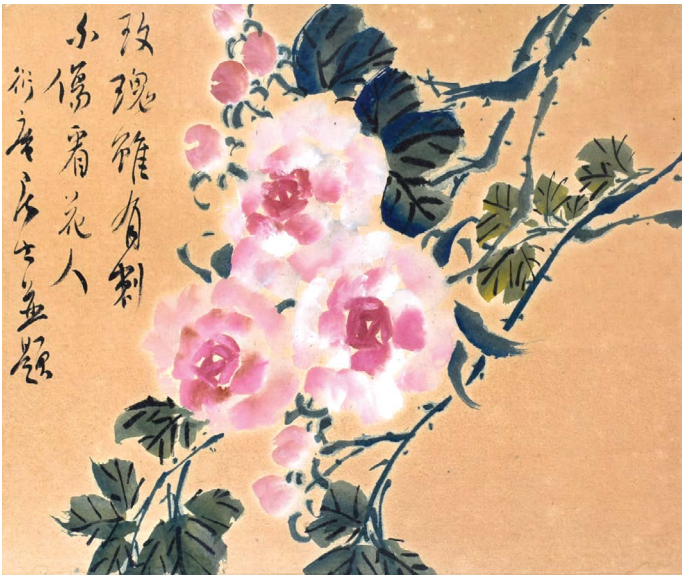 玫瑰雖有刺
不傷看花人
衍庵居士並題